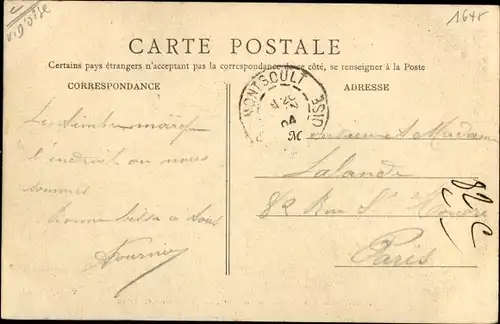 Val d'Oise
1645
CARTE POSTALE
Certains pays étrangers n'acceptant pas la correspondance de ce côté, se renseigner à la Poste
CORRESPONDANCE
ADRESSE
MONTSOULT
OISE
04
M onsieur et Madame
Lalande
82 Rue St Honoré
Paris
82 C
Le timbre marque
l'endroit où nous
sommes
Bonne bise à tous
Fournier